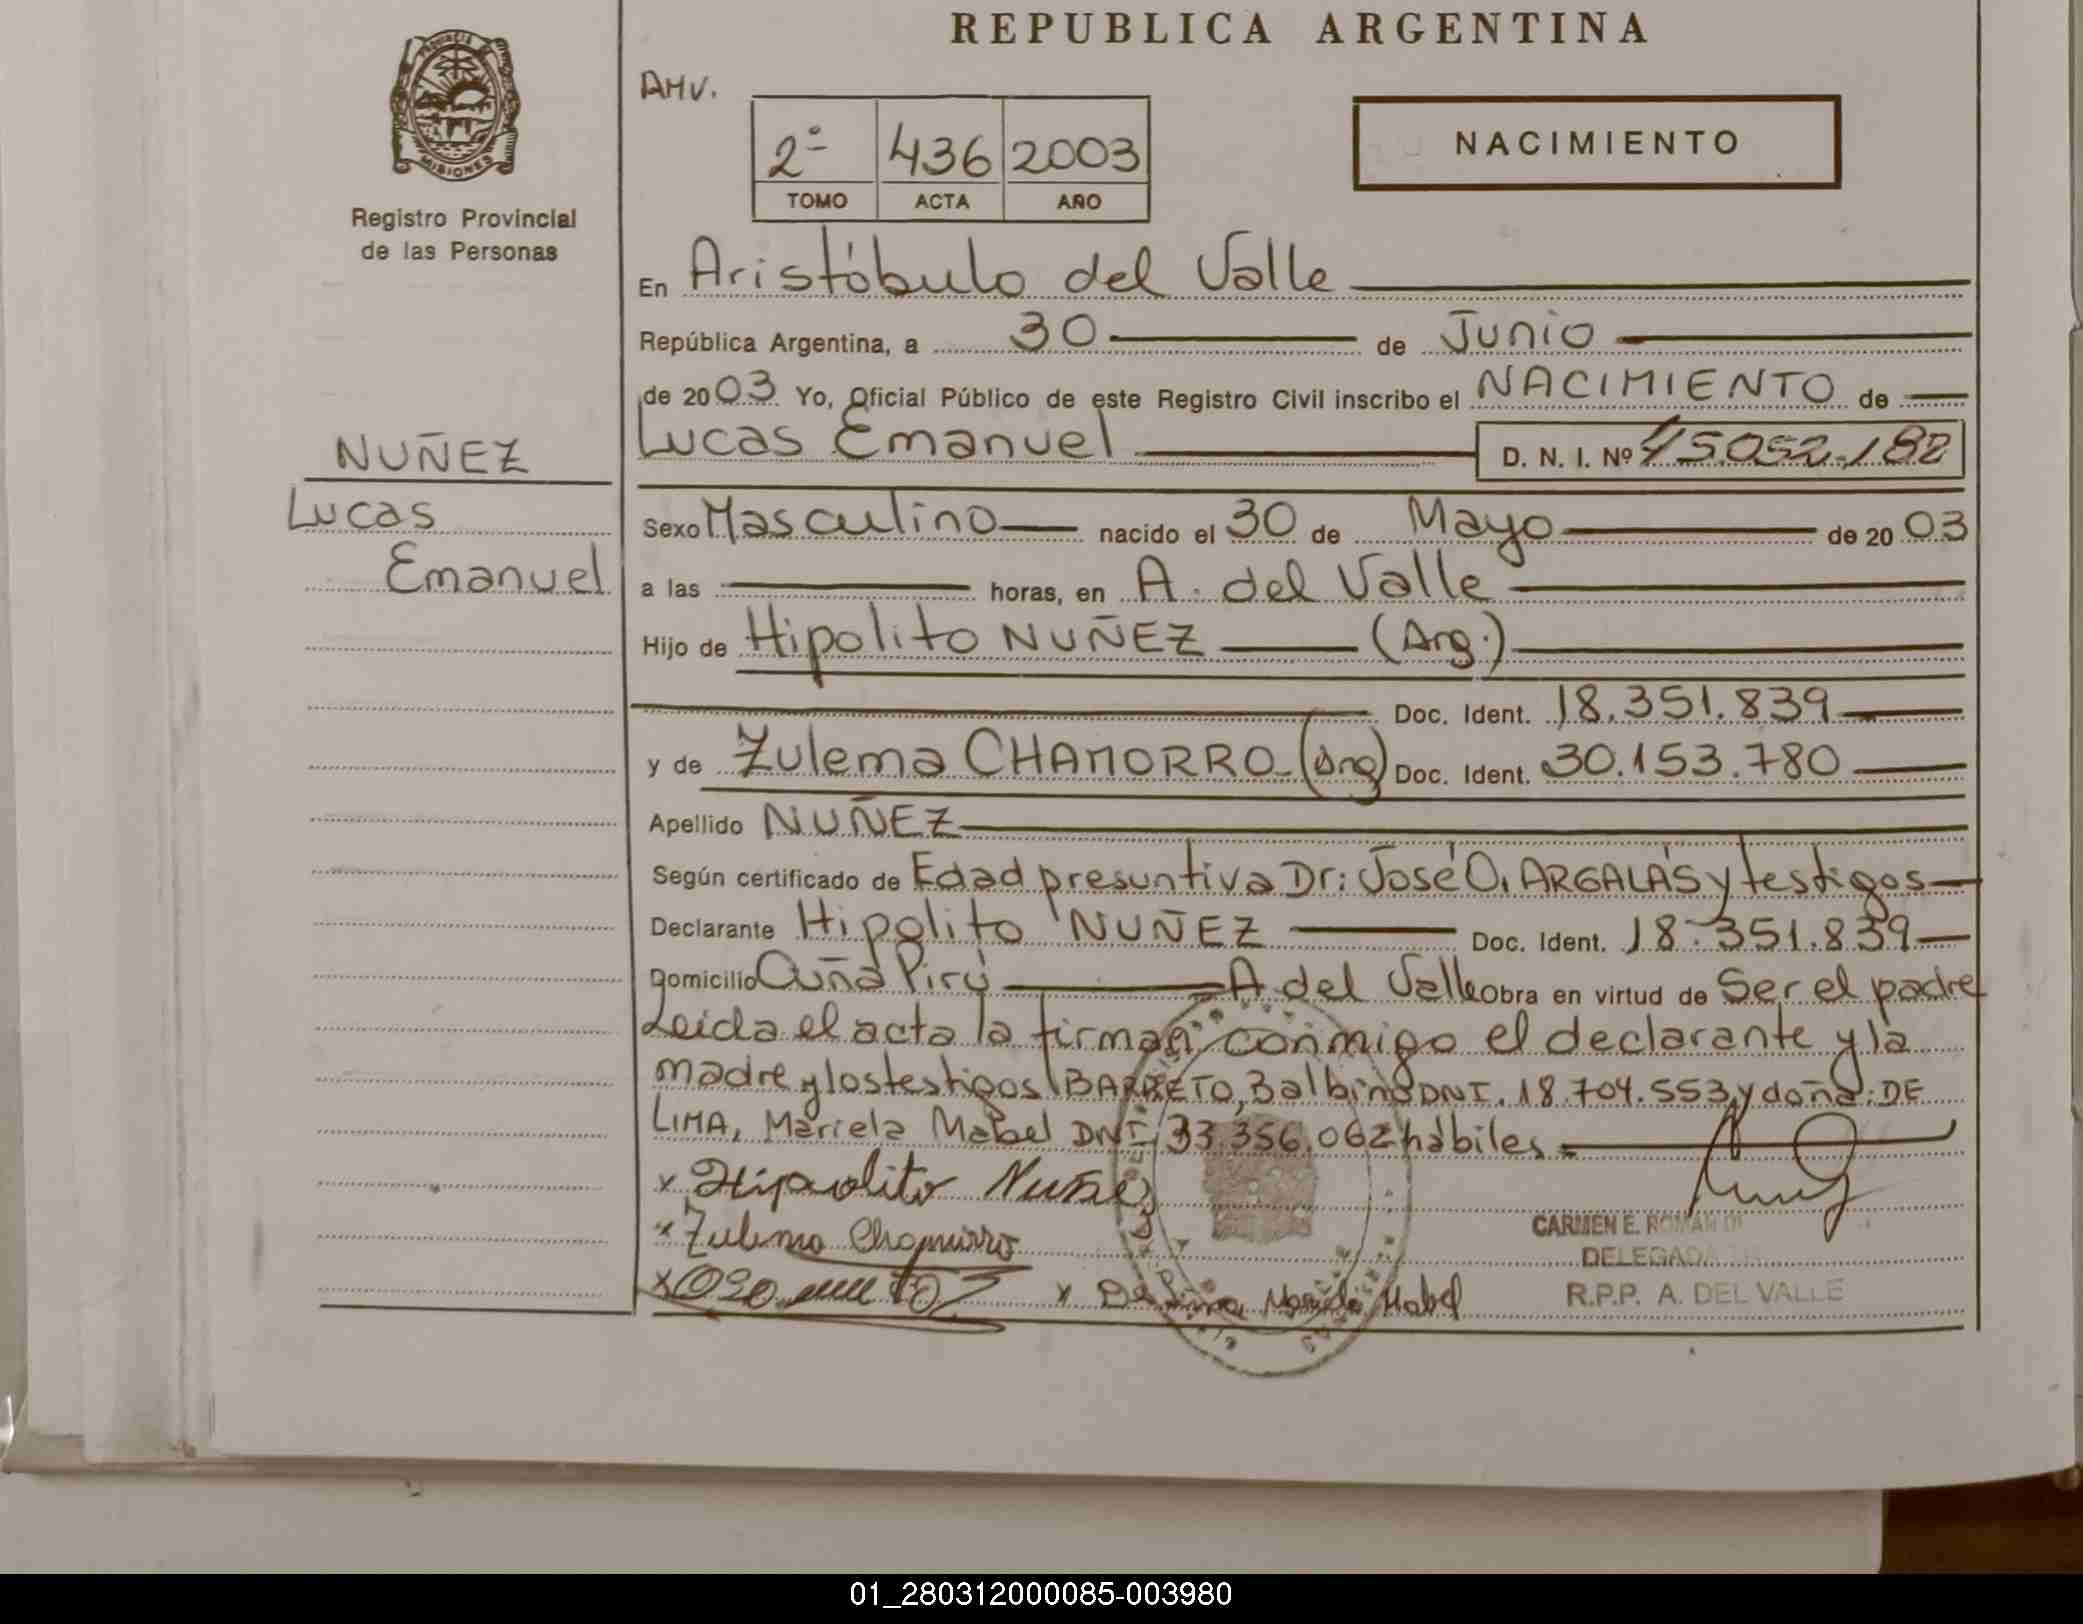 REPUBLICA ARGENTINA
PROVINCIA DE
MISIONES
Registro Provincial
de las Personas
AHV.
2º 436 2003
TOMO ACTA AÑO
NACIMIENTO
En Aristóbulo del Valle
República Argentina, a 30 de Junio
de 2003 Yo, Oficial Público de este Registro Civil inscribo el NACIMIENTO de
Lucas Emanuel D. N. I. Nº 45.052.182
NUÑEZ
Lucas
Emanuel
Sexo Masculino nacido el 30 de Mayo de 2003
a las horas, en A. del Valle
Hijo de Hipolito NUÑEZ (Arg.)
Doc. Ident. 18.351.839
y de Zulema CHAMORRO (Arg) Doc. Ident. 30.153.780
Apellido NUÑEZ
Según certificado de Edad presuntiva Dr: José O. ARGALÁS y testigos
Declarante Hipolito NUÑEZ Doc. Ident. 18.351.839
Domicilio Cuña Pirú A del Valle Obra en virtud de Ser el padre
Leida el acta la firman conmigo el declarante y la
madre y los testigos BARRETO, Balbino DNI. 18.704.553 y doña: DE
LIMA, Mariela Mabel DNI. 33.356.062 hábiles
x Hipolito Nuñez
x Zulema Chamorro
x
x De Lima Mariela Mabel
CARMEN E. ROMAN
DELEGADA
R.P.P. A. DEL VALLE
01_280312000085-003980